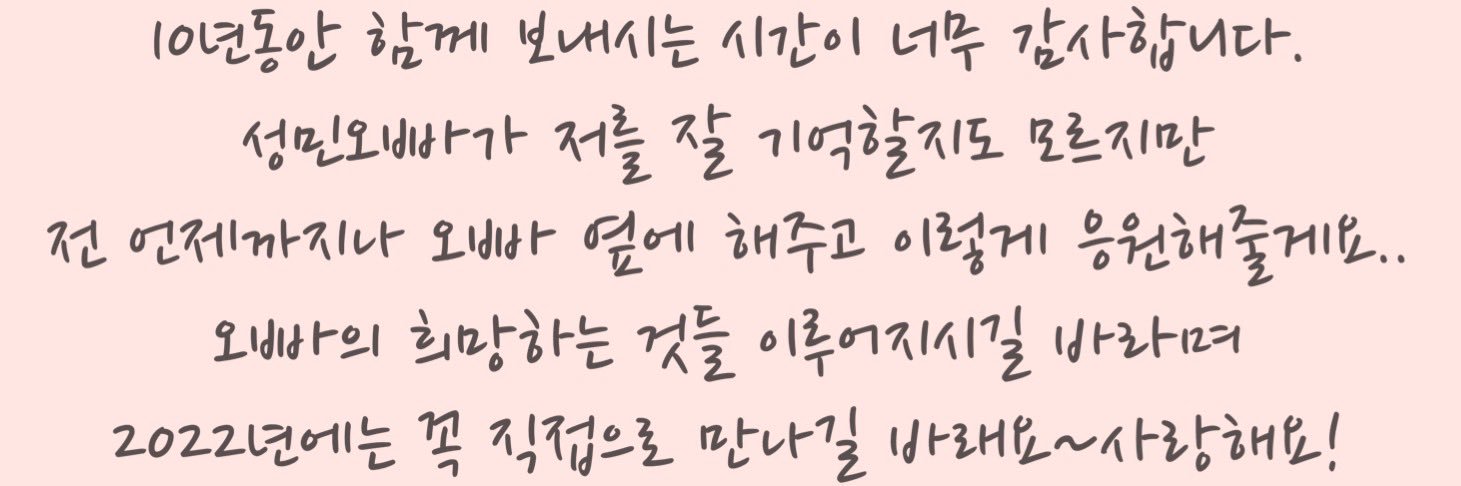 10년동안 함께 보내시는 시간이 너무 감사합니다.
성민오빠가 저를 잘 기억할지도 모르지만
전 언제까지나 오빠 옆에 해주고 이렇게 응원해줄게요..
오빠의 희망하는 것들 이루어지시길 바라며
2022년에는 꼭 직접으로 만나길 바래요~사랑해요!